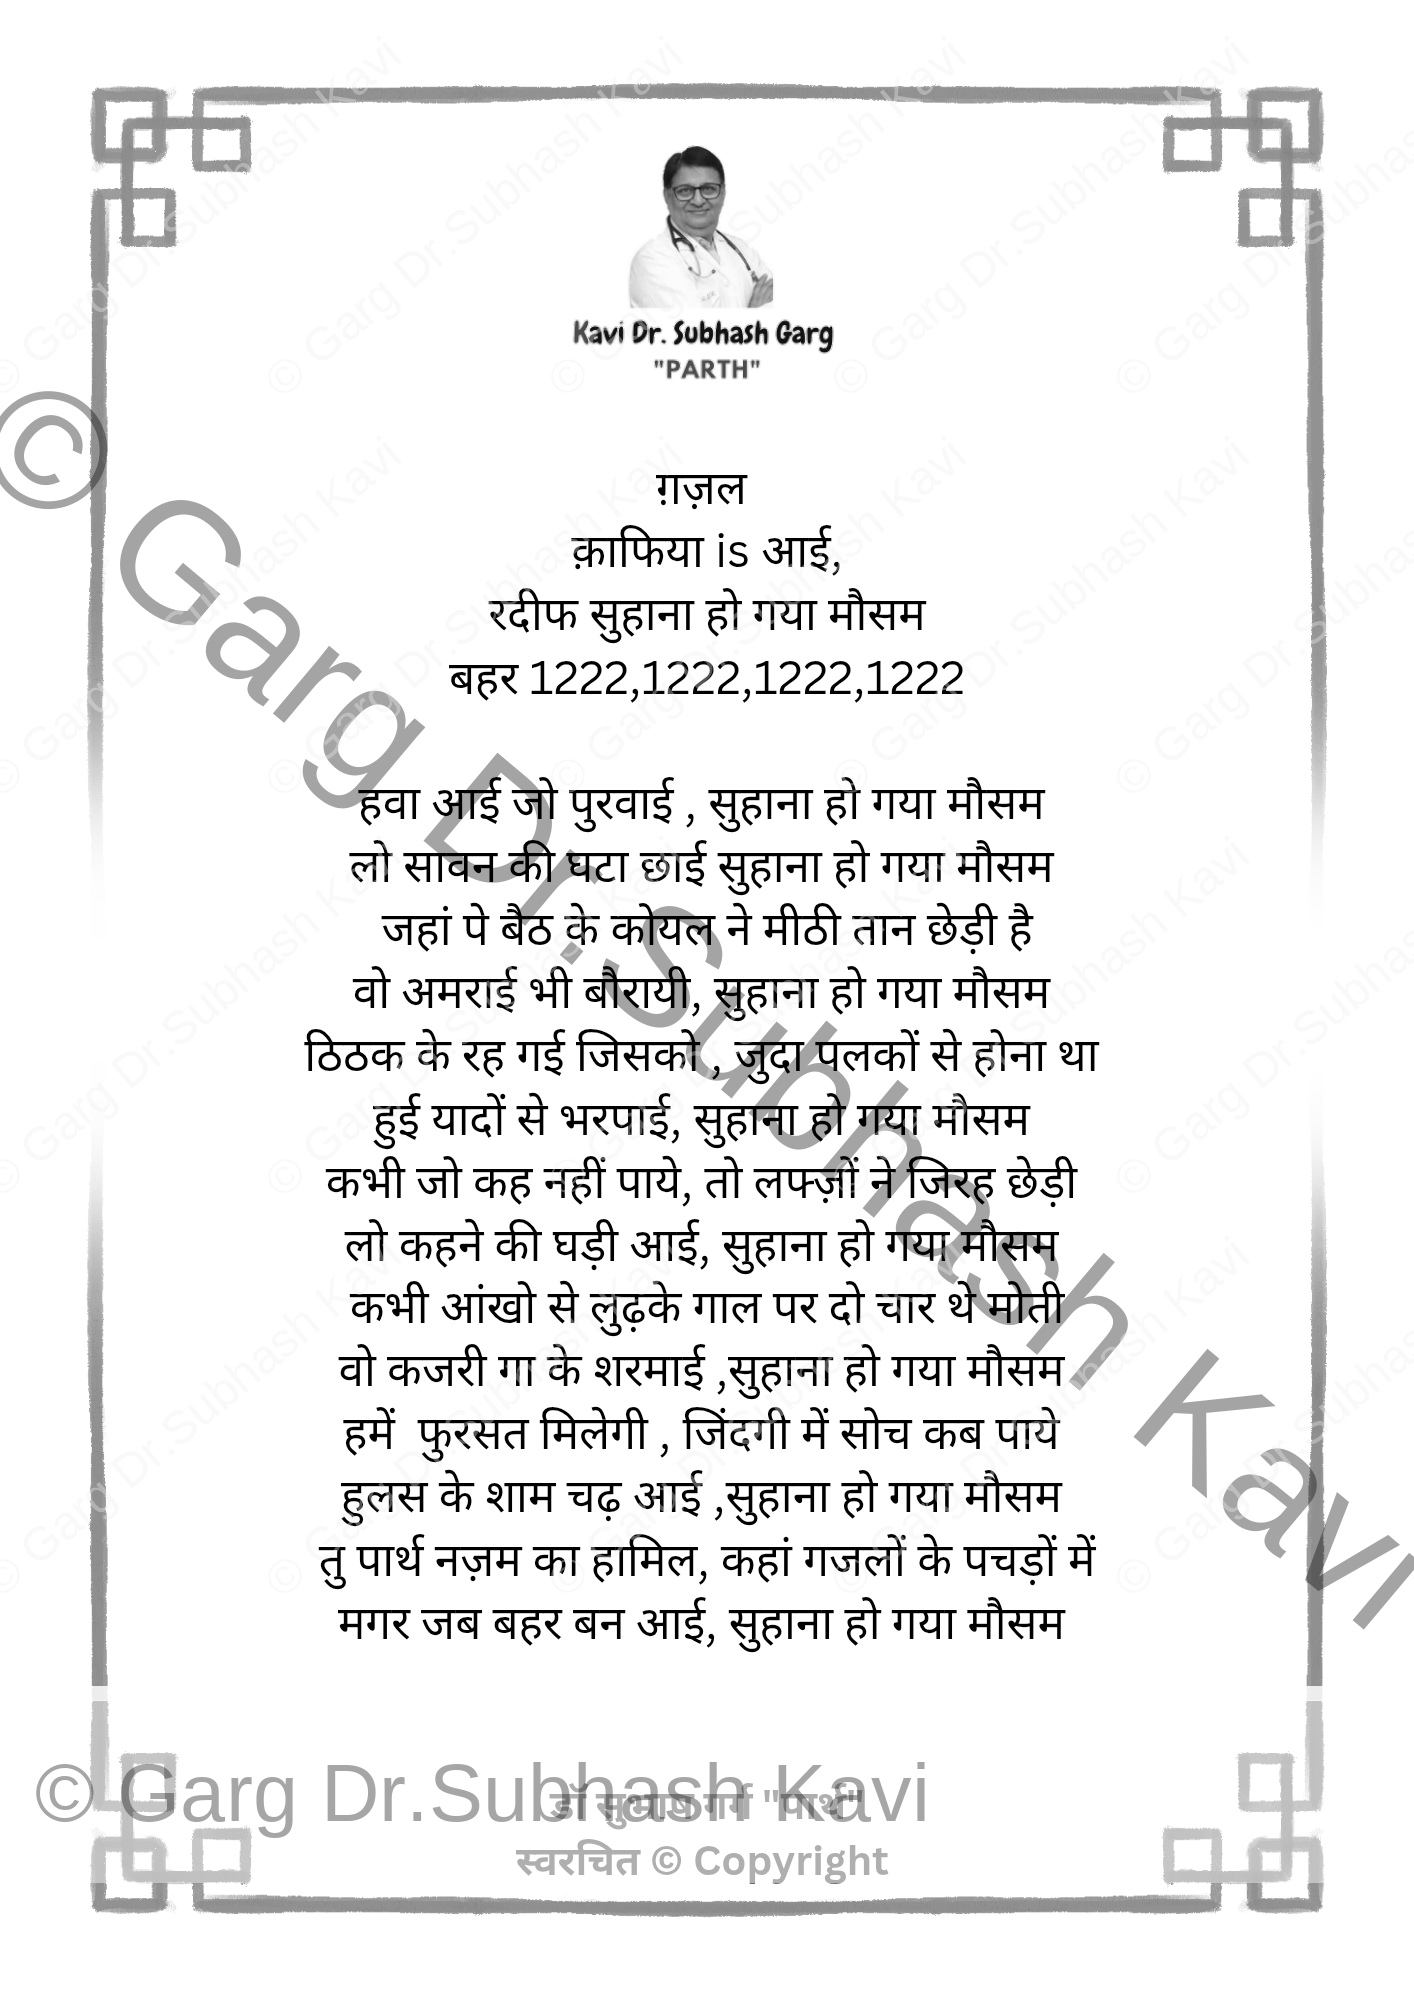 Kavi Dr. Subhash Garg
"PARTH"
ग़ज़ल
क़ाफिया is आई,
रदीफ सुहाना हो गया मौसम
बहर 1222,1222,1222,1222
हवा आई जो पुरवाई , सुहाना हो गया मौसम
लो सावन की घटा छाई सुहाना हो गया मौसम
जहां पे बैठ के कोयल ने मीठी तान छेड़ी है
वो अमराई भी बौरायी, सुहाना हो गया मौसम
ठिठक के रह गई जिसको , जुदा पलकों से होना था
हुई यादों से भरपाई, सुहाना हो गया मौसम
कभी जो कह नहीं पाये, तो लफ्ज़ों ने जिरह छेड़ी
लो कहने की घड़ी आई, सुहाना हो गया मौसम
कभी आंखो से लुढ़के गाल पर दो चार थे मोती
वो कजरी गा के शरमाई ,सुहाना हो गया मौसम
हमें  फुरसत मिलेगी , जिंदगी में सोच कब पाये
हुलस के शाम चढ़ आई ,सुहाना हो गया मौसम
तु पार्थ नज़म का हामिल, कहां गजलों के पचड़ों में
मगर जब बहर बन आई, सुहाना हो गया मौसम
© Garg Dr.Subhash Kavi
© Garg Dr.Subhash Kavi
डॉ सुभाष गर्ग "पार्थ"
स्वरचित © Copyright